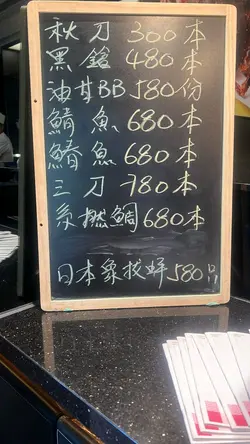 秋刀 300本
黑鎗 480本
油甘BB 580份
鯖魚 680本
鰆魚 680本
三刀 780本
糸撚鯛 680本
日本象拔蚌 580只